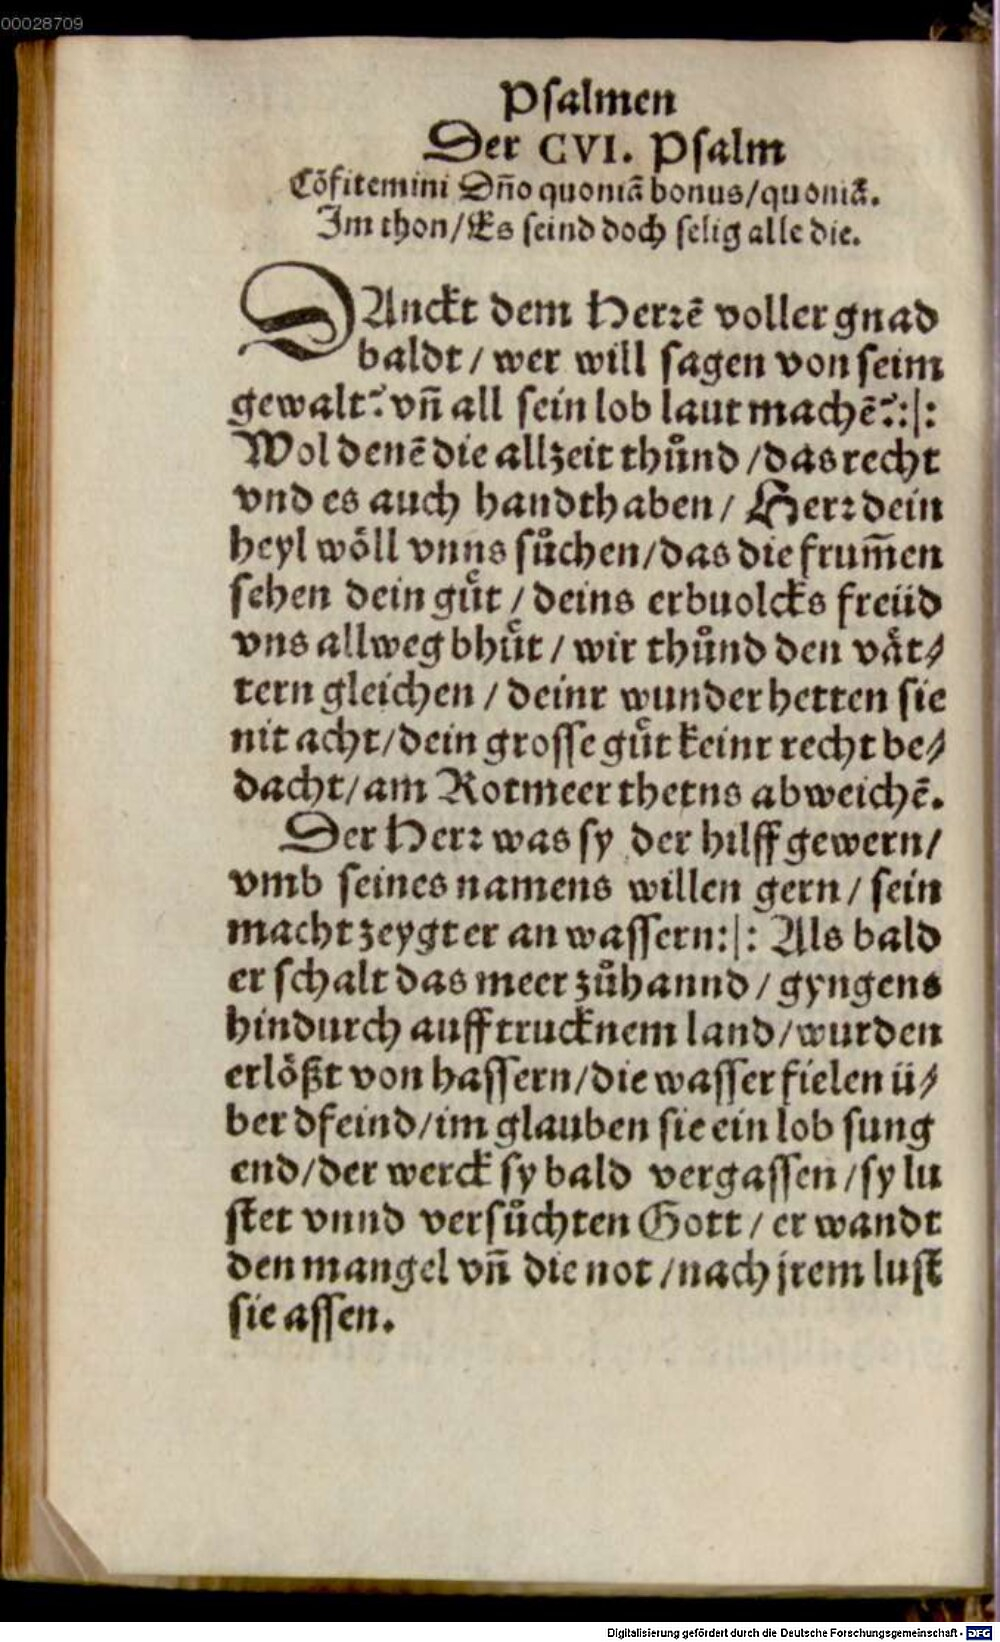 00028709
Psalmen
Der CVI. Psalm
Cõfitemini Dño quoniã bonus/quoniã.
Im thon/Es seind doch selig alle die.
DAnckt dem Herꝛẽ voller gnad
baldt/ wer will sagen von seim
gewalt? vñ all sein lob laut machẽ?:|:
Wol denẽ die allzeit thůnd /das recht
vnd es auch handthaben/ Herꝛ dein
heyl wöll vnns sůchen/das die frum̃en
sehen dein gůt / deins erbuolcks freüd
vns allweg bhůt / wir thůnd den vät⸗
tern gleichen / deinr wunder hetten sie
nit acht/dein grosse gůt keinr recht be⸗
dacht/am Rotmeer thetns abweichẽ.
Der Herꝛ was sy der hilff gewern/
vmb seines namens willen gern/ sein
macht zeygt er an wassern:|: Als bald
er schalt das meer zůhannd / gyngens
hindurch auff trucknem land/wurden
erlößt von hassern/die wasser fielen ü⸗
ber dfeind/im glauben sie ein lob sung
end/der werck sy bald vergassen /sy lu
stet vnnd versůchten Gott/ er wandt
den mangel vñ die not /nach jrem lust
sie assen.
Digitalisierung gefördert durch die Deutsche Forschungsgemeinschaft - DFG